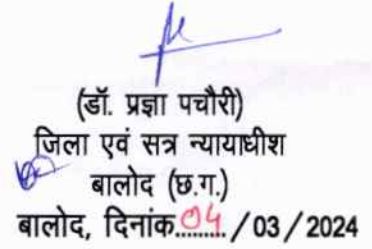 (डॉ. प्रज्ञा पचौरी)
जिला एवं सत्र न्यायाधीश
बालोद (छ.ग.)
बालोद, दिनांक..04.../03/2024